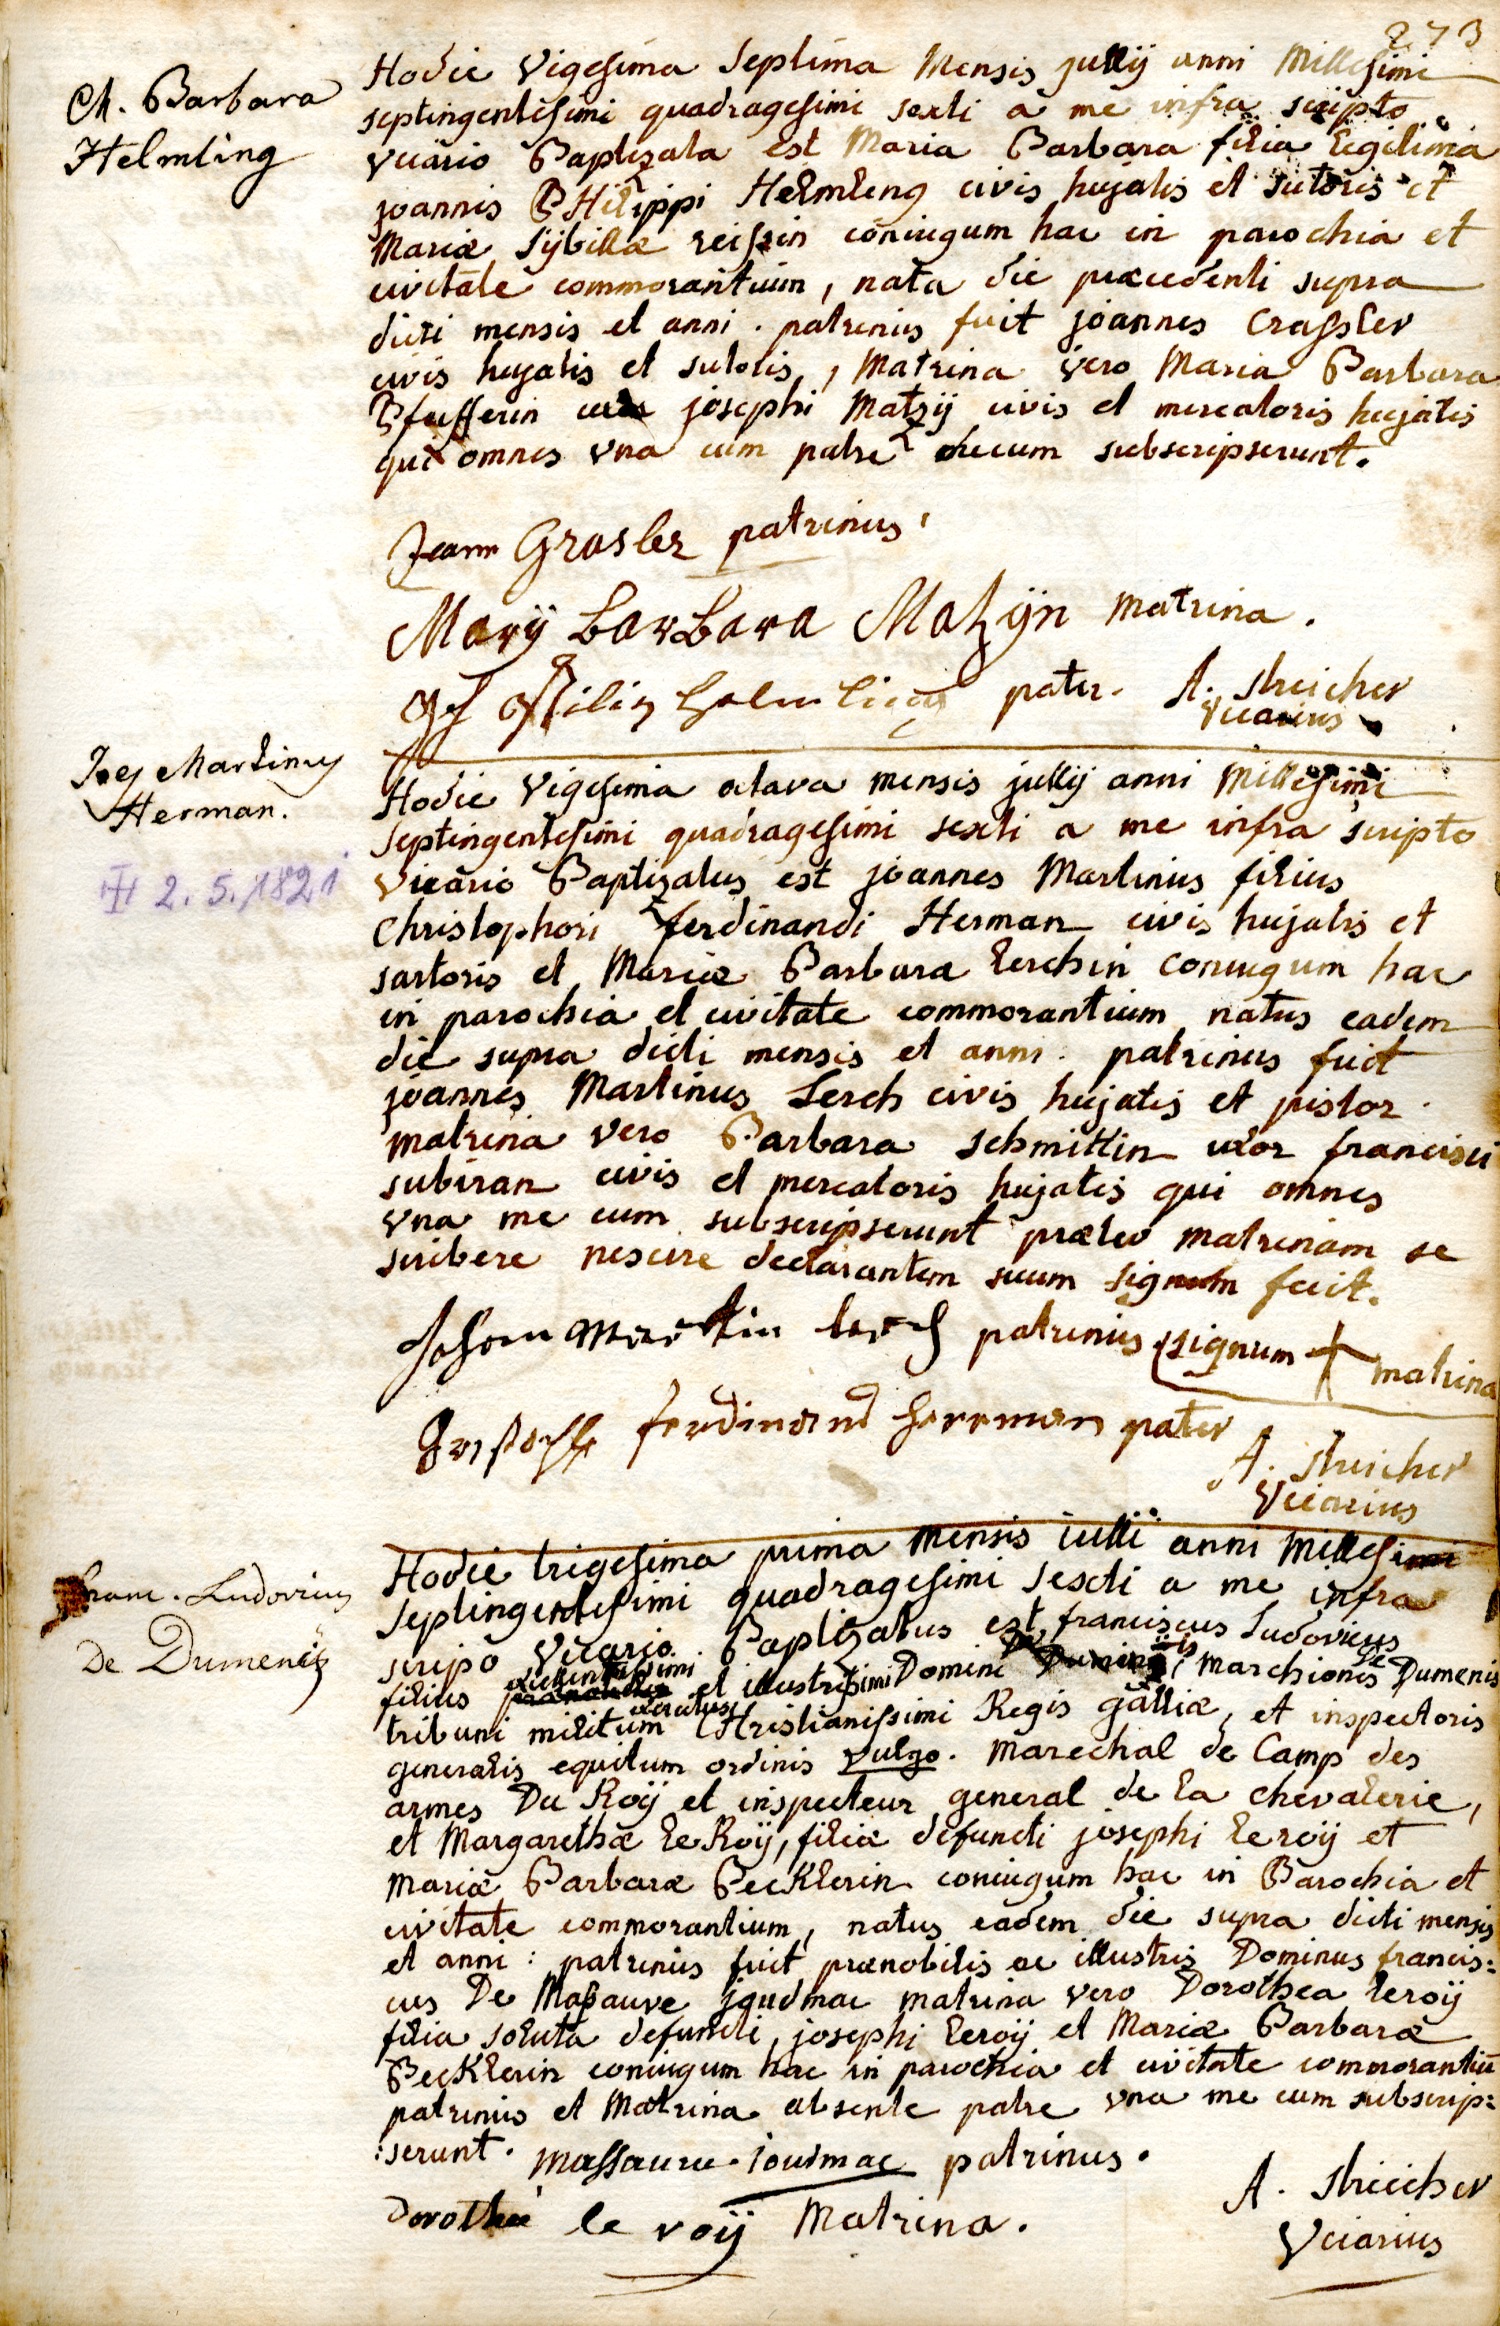 273
M. Barbara
Helmling
Hodie Vigesima Septima Mensis jullij anni Millesimi
septingentesimi quadragesimi sexti a me infra scripto
vicario Baptizata est Maria Barbara filia legitima
joannis PHilippi Helmleng civis hujatis et sutoris et
Mariæ Sybillæ reissin coniugum hac in parochia et
civitate commorantium, nata die præcedenti supra
dicti mensis et anni. patrinus fuit joannes Crassler
civis hujatis et sutoris, Matrina vero Maria Barbara
Pfufferin josephi Matzij civis et mercatoris hujatis
qui omnes vna cum patre mecum subscripserunt.
Jeann Grasler patrinus
Marÿ barbara Matzÿn matrina.
pater. A. Streicher
Vicarius
Joes Martinus
Herman.
2. 5. 1821
Hodie Vigesima octava mensis jullij anni Millesimi
septingentesimi quadragesimi sexti a me infra scripto
Vicario Baptizatus est joannes Martinus filius
Christophori ferdinandi Herman civis hujatis et
sartoris et Mariæ Barbara Lerchin coniugum hac
in parochia et civitate commorantium natus eadem
die supra dicti mensis et anni. patrinus fuit
joannes Martinus Lerch civis hujatis et pistor.
matrina vero Barbara schmittin uxor francisci
subiran civis et mercatoris hujatis qui omnes
vna me cum subscripserunt præter matrinam se
scribere nescire declarantem suum signum fecit.
Johan Martin lerch patrinus signum + matrina
ferdinand herrman pater
A. Streicher
Vicarius
Franc. Ludovicus
De Dumeniz
Hodie trigesima prima Mensis iullii anni Millesimi
septingentesimi quadragesimi sexti a me infra
scripo Vicario Baptizatus est franciscus Ludovicus
filius et illustrissimi Domini Marchionis De Dumenis
tribuni militum CHristianissimi Regis galliæ, et inspectoris
generalis equitum ordinis vulgo. Marechal de Camp des
armes Du Roÿ et inspecteur general de la chevalerie,
et Margarethæ le Roÿ, filiæ defuncti josephi leroÿ et
Mariæ Barbaræ Becklerin coniugum hac in Parochia et
civitate commorantium, natus eadem die supra dicti mensis
et anni: patrinus fuit prænobilis ac illustris Dominus francis:
cus De Massauve jgudmac matrina vero Dorothea leroÿ
filia soluta defuncti josephi leroÿ et Mariæ Barbaræ
Becklerin coniugum hac in parochia et civitate commorantiū
patrinus et Matrina absente patre vna me cum subscrip:
:serunt. Massauve. ioudmac patrinus.
Dorothée le roÿ Matrina.
A. Streicher
Vicarius